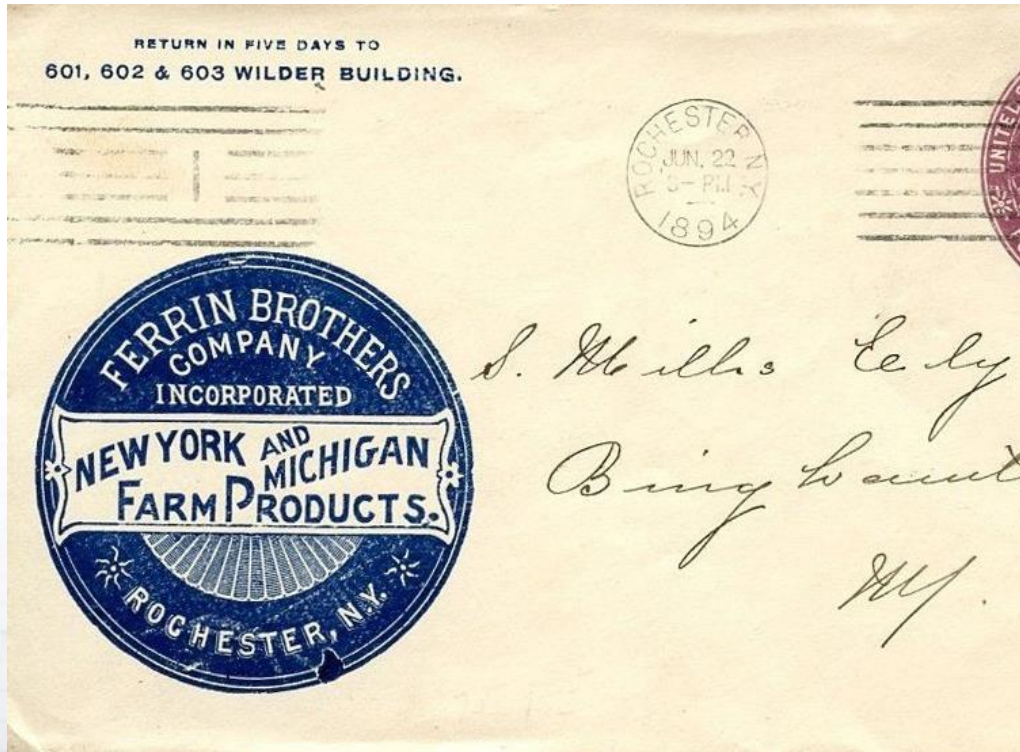 RETURN IN FIVE DAYS TO
601, 602 & 603 WILDER BUILDING.
ROCHESTER N.Y.
JUN. 22
3- PM
1894
UNITED
FERRIN BROTHERS
COMPANY
INCORPORATED
NEW YORK AND
MICHIGAN
FARM PRODUCTS.
ROCHESTER, N.Y.
S. Mills Ely
Binghamt
NY.